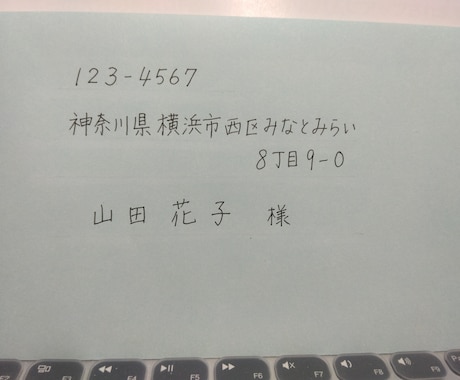 123-4567
神奈川県横浜市西区みなとみらい
8丁目9-0
山田花子 様
F4
F5
F6
F7
F8
F9